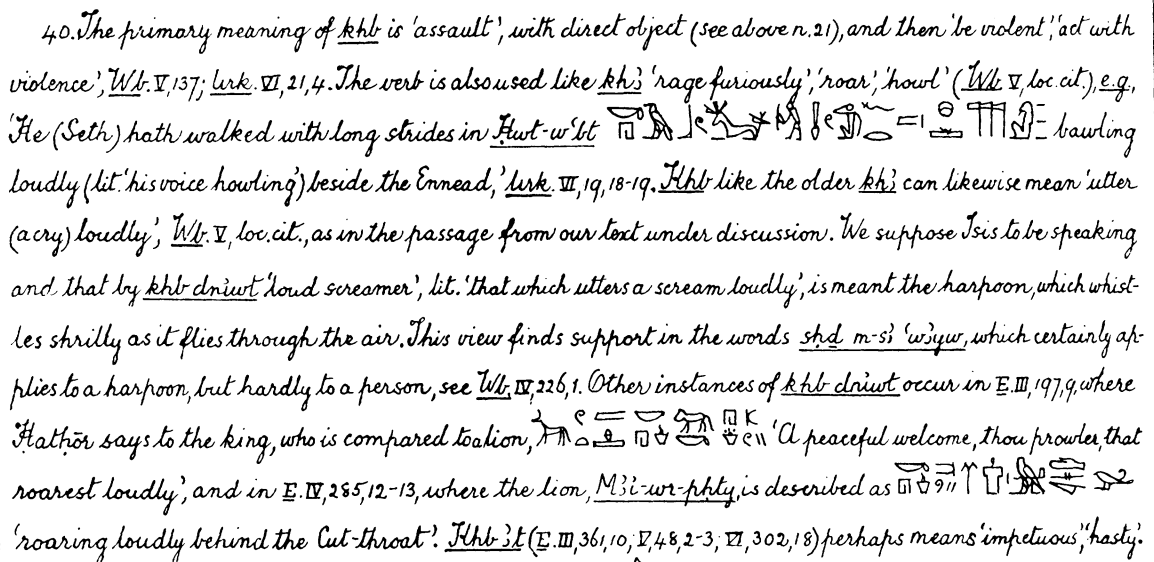 40. The primary meaning of khb is 'assault', with direct object (see above n. 21), and then 'be violent', 'act with
violence', Wb. V, 137; Urk. VI, 21, 4. The verb is also used like khꜣ 'rage furiously', 'roar', 'howl' (Wb. V, loc. cit.), e.g.,
'He (Seth) hath walked with long strides in Ḥwt-wꜥbt bawling
loudly (lit. 'his voice howling') beside the Ennead,' Urk. VI, 19, 18-19. Khb like the older khꜣ can likewise mean 'utter
(a cry) loudly', Wb. V, loc. cit., as in the passage from our text under discussion. We suppose Isis to be speaking
and that by khb dnỉwt 'loud screamer', lit. 'that which utters a scream loudly', is meant the harpoon, which whist-
les shrilly as it flies through the air. This view finds support in the words sḥḏ m-sꜣ ꜥwꜣyw, which certainly ap-
plies to a harpoon, but hardly to a person, see Wb. IV, 226, 1. Other instances of khb dnỉwt occur in E. III, 197, 9, where
Ḥatḥōr says to the king, who is compared to a lion, 'A peaceful welcome, thou prowler, that
roarest loudly', and in E. IV, 285, 12-13, where the lion, Mꜣỉ-wr-pḥty, is described as
'roaring loudly behind the Cut-throat'. Khb ꜣt (E. III, 361, 10; V, 48, 2-3; VI, 302, 18) perhaps means 'impetuous', 'hasty'.